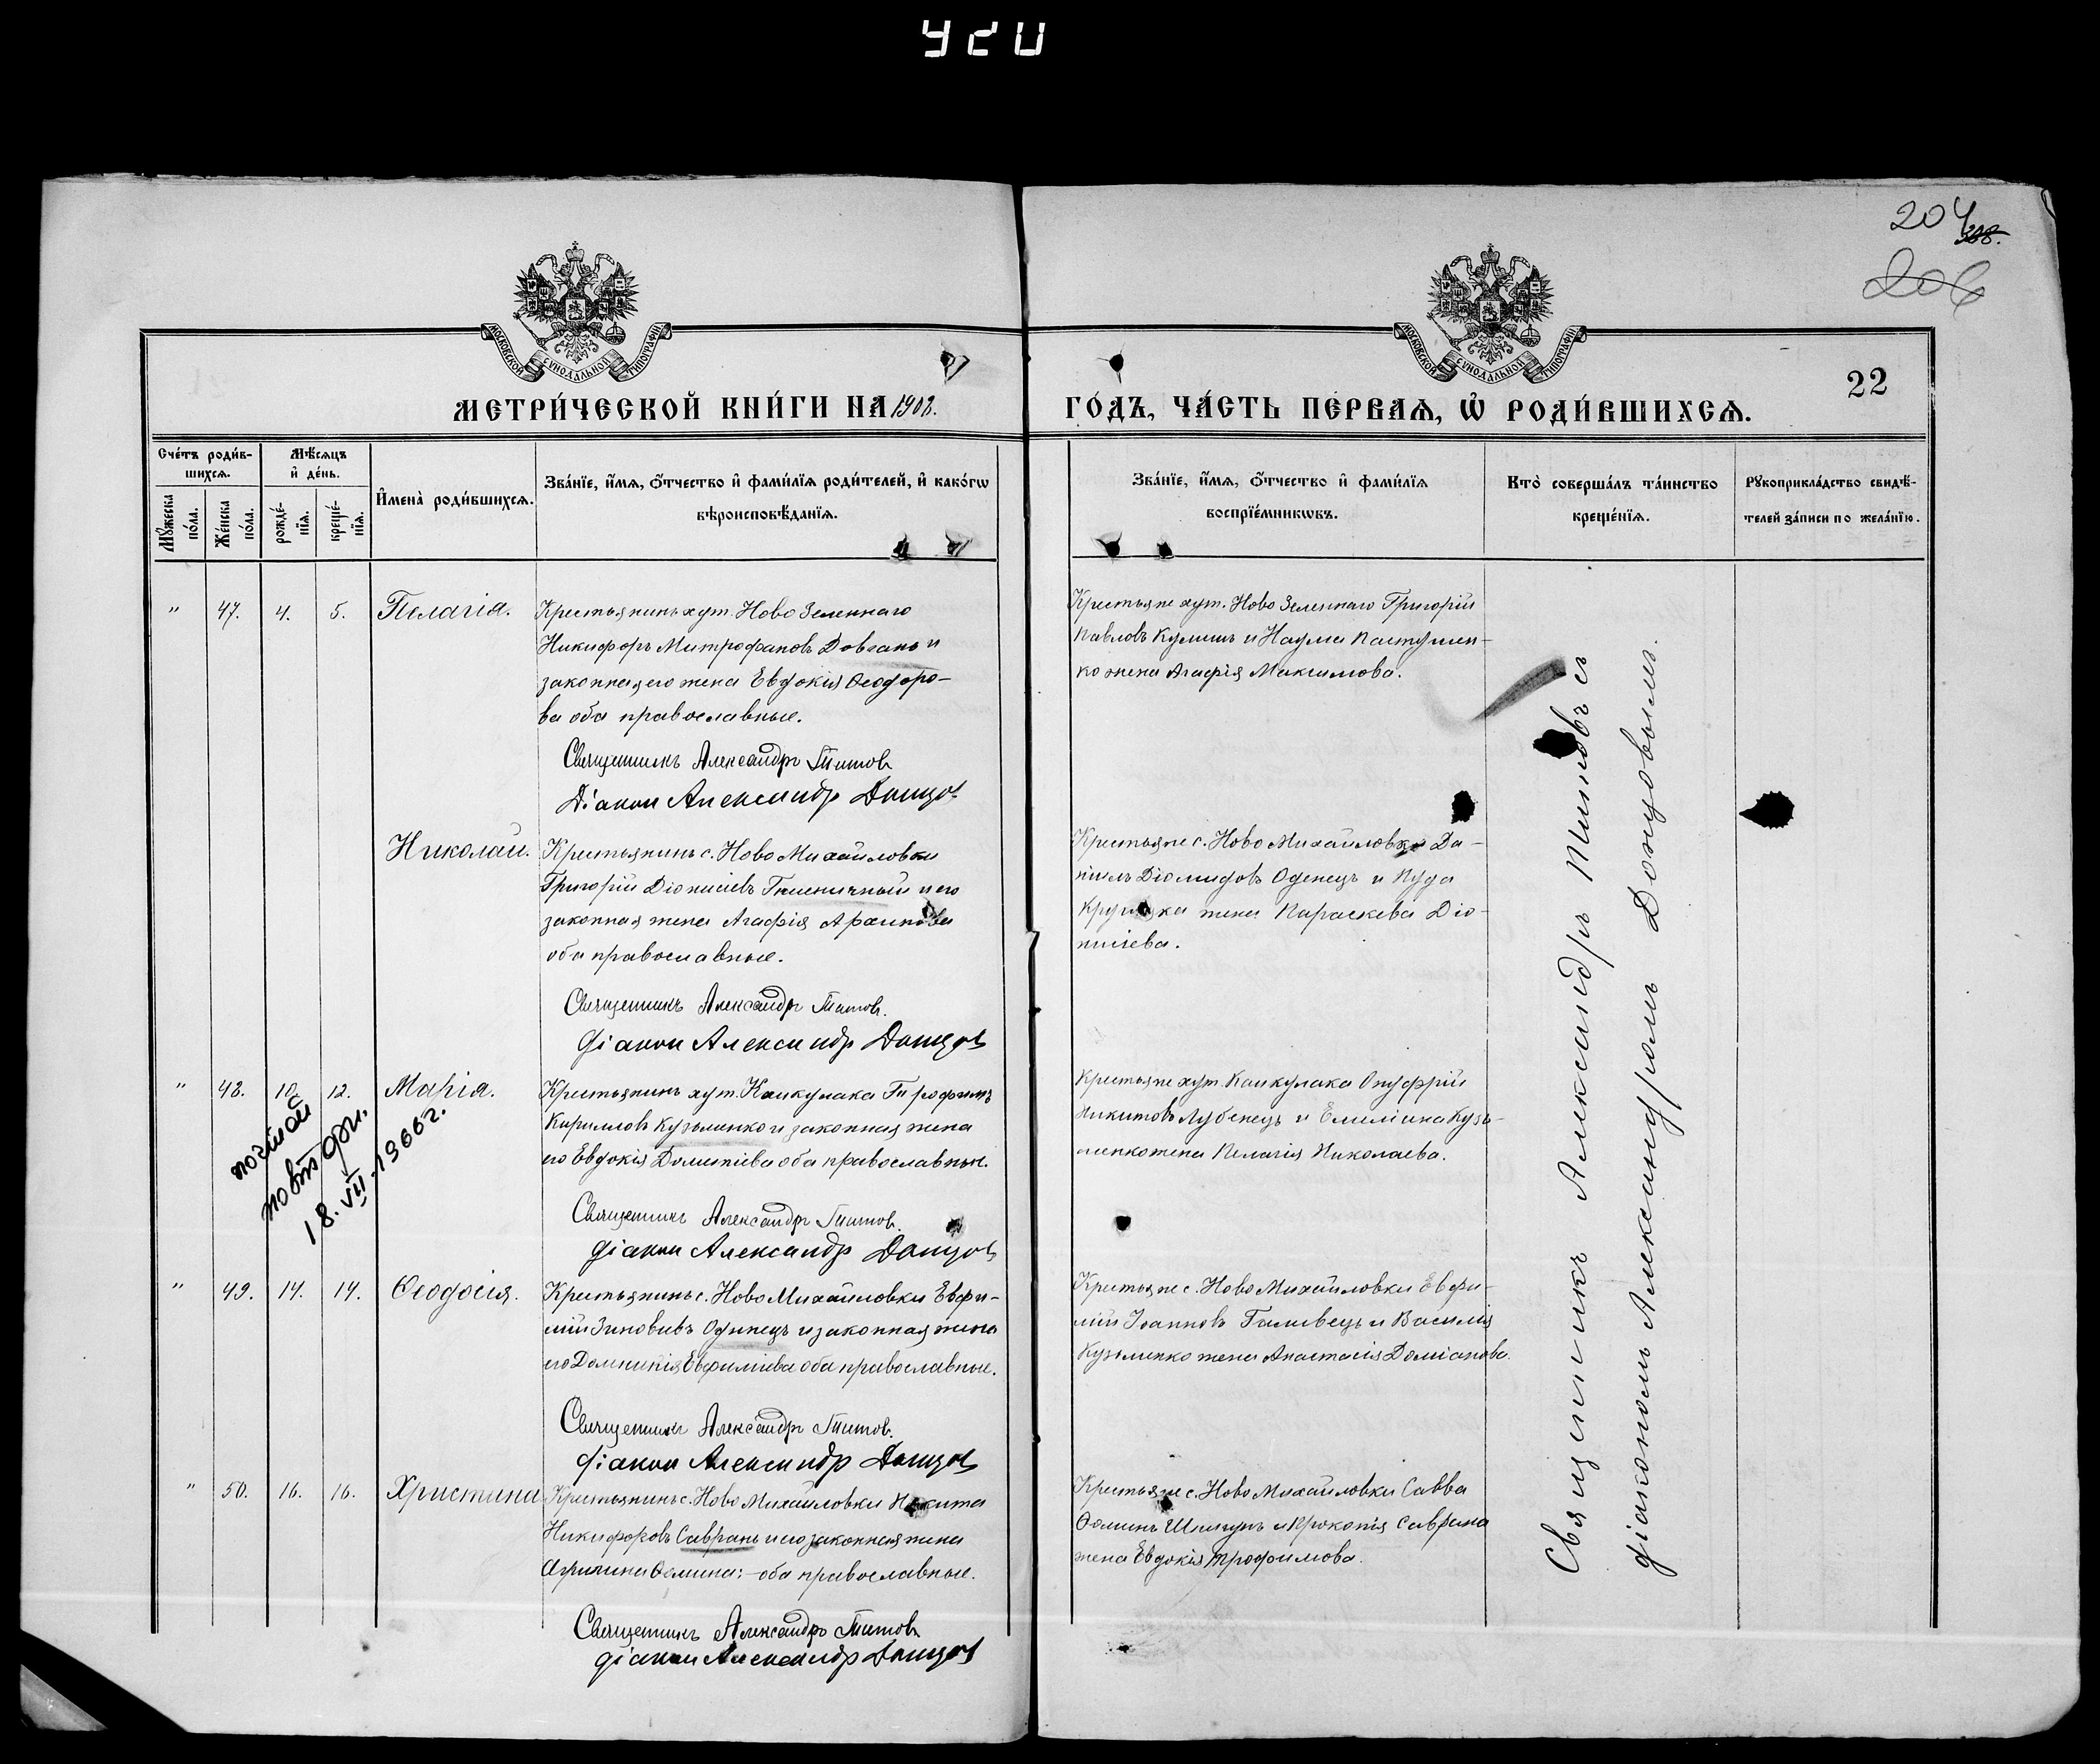 204
308.
206
МОСКОВСКОЙ СѴНОДАЛЬНОЙ ТИПОГРАФІИ
МОСКОВСКОЙ СѴНОДАЛЬНОЙ ТИПОГРАФІИ
22
МЕТРИ́ЧЕСКОЙ КНИ́ГИ НА 1908.
ГО́ДЪ, ЧА́СТЬ ПЕ́РВАЯ, Ѡ҆ РОДИ́ВШИХСЯ.
Сче́тъ роди́в-
шихся.
Мѣ́сяцъ
и҆ де́нь.
Мꙋ́жеска
по́ла.
Же́нска
по́ла.
рожде́-
нїѧ.
креще́-
нїѧ.
И҆мена̀ роди́вшихсѧ.
Зва́нїе, и҆́мѧ, ѻ҆́тчество и҆ фами́лїѧ роди́телей, и҆ како́гѡ
вѣроисповѣ́данїѧ.
Зва́нїе, и҆́мѧ, ѻ҆́тчество и҆ фами́лїѧ
воспрїе́мникѡвъ.
Кто̀ соверша́лъ та́инство
креще́нїѧ.
Рꙋкоприкла́дство свидѣ́-
телей за́писи по жела́нїю.
" 47. 4. 5. Пелагія.
Крестьянинъ хут. Ново Зеленнаго
Никифоръ Митрофановъ Довгань и
законная его жена Евдокія Ѳеодоро-
ва оба православные.
Священникъ Александръ Титовъ
Діакон Александр Донцовъ
Крестьяне хут. Ново Зеленнаго Григорій
Павловъ Кулишъ и Наума Пастушен-
ко жена Агафія Максимова.
Николай.
Крестьянинъ с. Ново Михайловки
Григорій Діонисіевъ Пшеничный и его
законная жена Агафія Архипова
оба православные.
Священникъ Александръ Титовъ.
діакон Александр Донцовъ
Крестьяне с. Ново Михайловки Да-
ніилъ Діомидовъ Оденецъ и Іуда
жена Параскева Діо-
нисіева.
" 48. 10. 12. Марія.
Крестьянинъ хут. Канкулака Трофимъ
Кирилловъ Кузьменко и законная жена
его Евдокія Дометіева оба православные.
Священникъ Александръ Титовъ.
діакон Александр Донцовъ
Крестьяне хут. Канкулака Онуфрій
Никитовъ Лубенецъ и Емеліана Кузь-
менко жена Пелагія Николаева.
18. VII. 1966 г.
" 49. 14. 14. Ѳеодосія.
Крестьянинъ с. Ново Михайловки Евфи-
мій Зиновьевъ Одинецъ и законная жена
его Домникія Евфиміева оба православные.
Священникъ Александръ Титовъ.
діакон Александр Донцовъ
Крестьяне с. Ново Михайловки Евфи-
мій Іоанновъ Галивецъ и Василія
Кузьменко жена Анастасія Даміанова.
" 50. 16. 16. Христина
Крестьянинъ с. Ново Михайловки Никита
Никифоровъ Савранъ и его законная жена
Агрипина Ѳомина: - оба православные.
Священникъ Александръ Титовъ
діакон Александр Донцовъ
Крестьяне с. Ново Михайловки Савва
Ѳоминъ Шингуръ и Прокопія Саврана
жена Евдокія Трофимова.
Священникъ Александръ Титовъ съ
діакономъ Александромъ Донцовымъ.